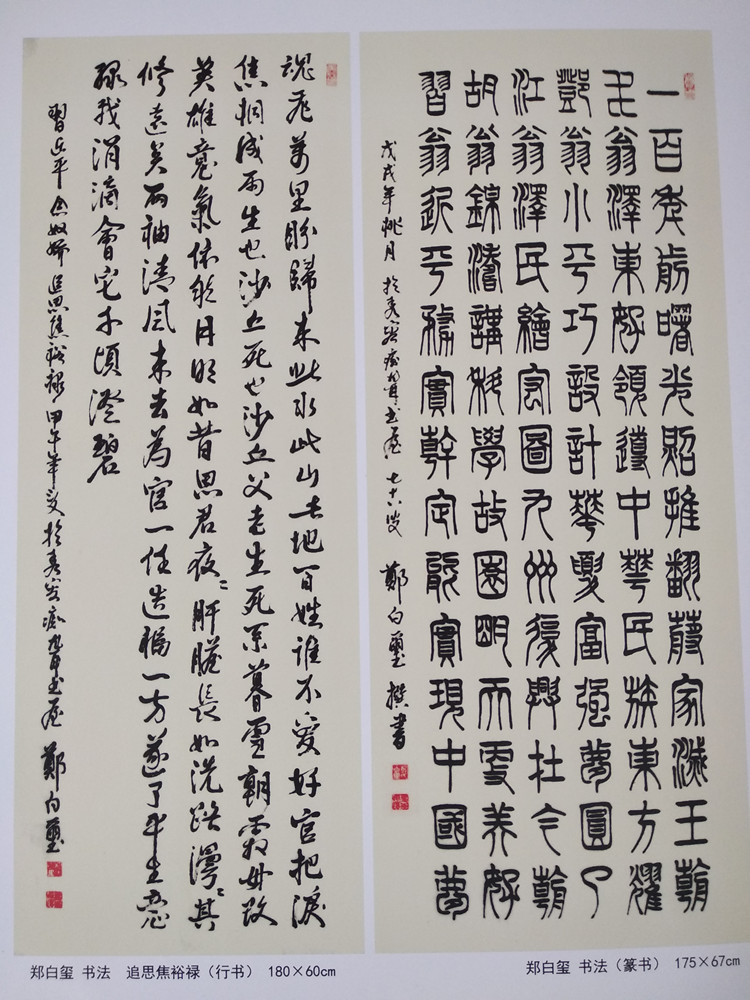 魂飛萬里盼歸來此水此山此地百姓誰不愛好官把淚
焦桐成雨生也沙丘死也沙丘父老生死系暮雪朝霜毋改
英雄意氣依然月明如昔思君夜〻肝膽長如洗路漫〻其
修遠矣兩袖清風來去為官一任造福一方遂了平生意
綠我涓滴會它千頃澄碧
習近平念奴嬌追思焦裕祿甲午年於秀容書屋 鄭白璽
一百年前曙光照推翻蔣家滅王朝
毛翁澤東好領導中華民族東方耀
鄧翁小平巧設計華夏富強夢圓了
江翁澤民繪宏圖九州復興壯今朝
胡翁錦濤講科學故園明而變美好
習翁近平務實幹定能實現中國夢
戊戌年桃月於秀容書屋七十八歲 鄭白璽撰書
郑白玺 书法 追思焦裕禄（行书） 180×60cm
郑白玺 书法（篆书） 175×67cm